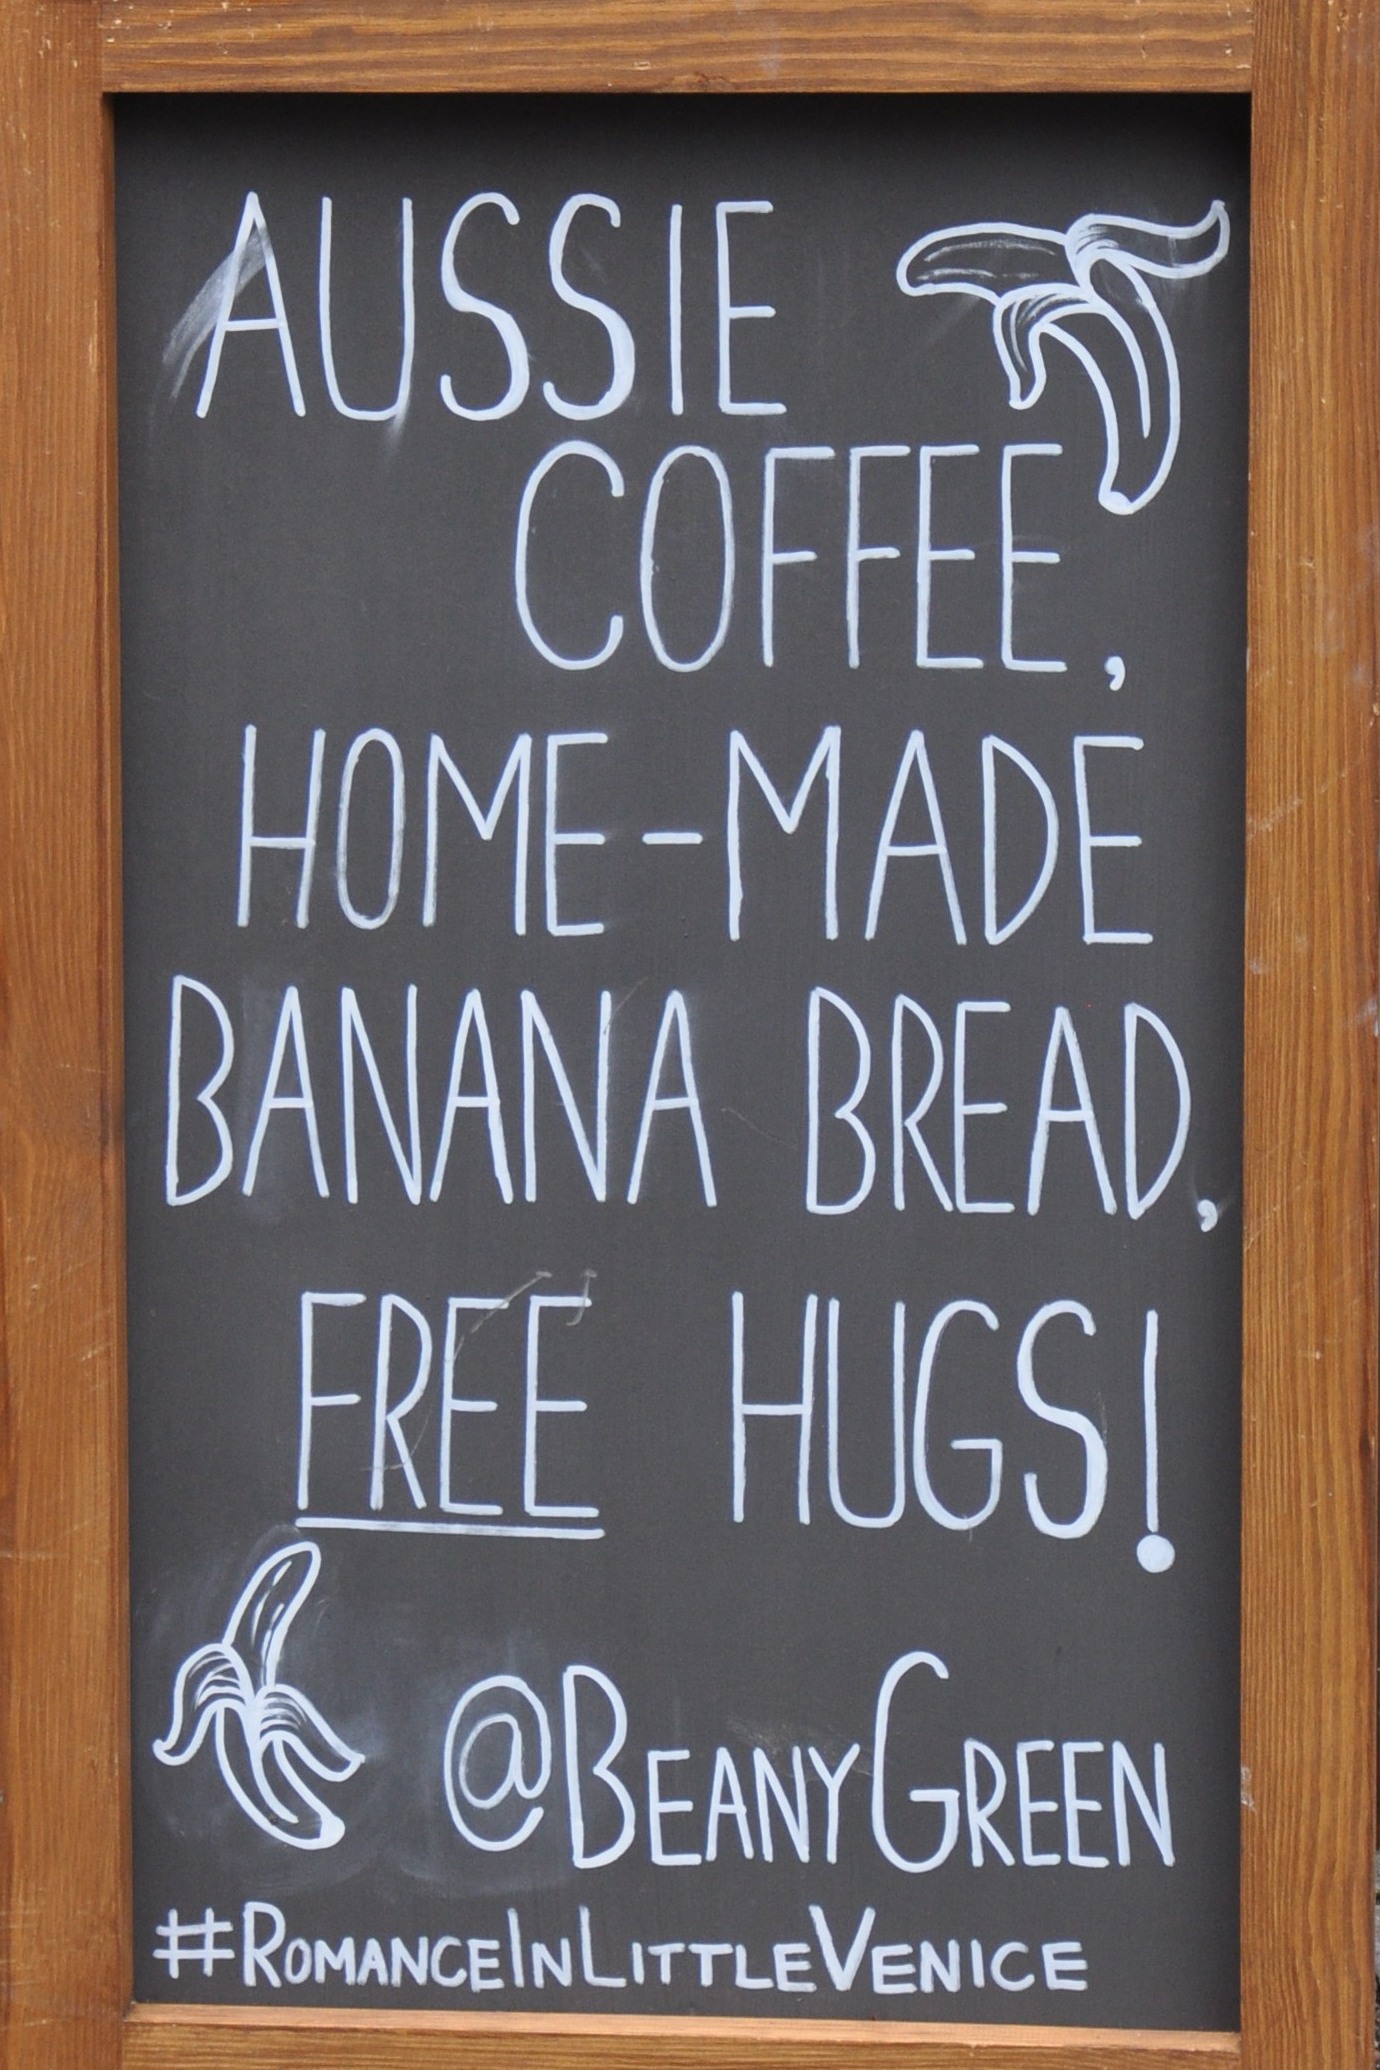 AUSSIE
COFFEE,
HOME-MADE
BANANA BREAD,
FREE HUGS!
@BEANYGREEN
#ROMANCEINLITTLEVENICE